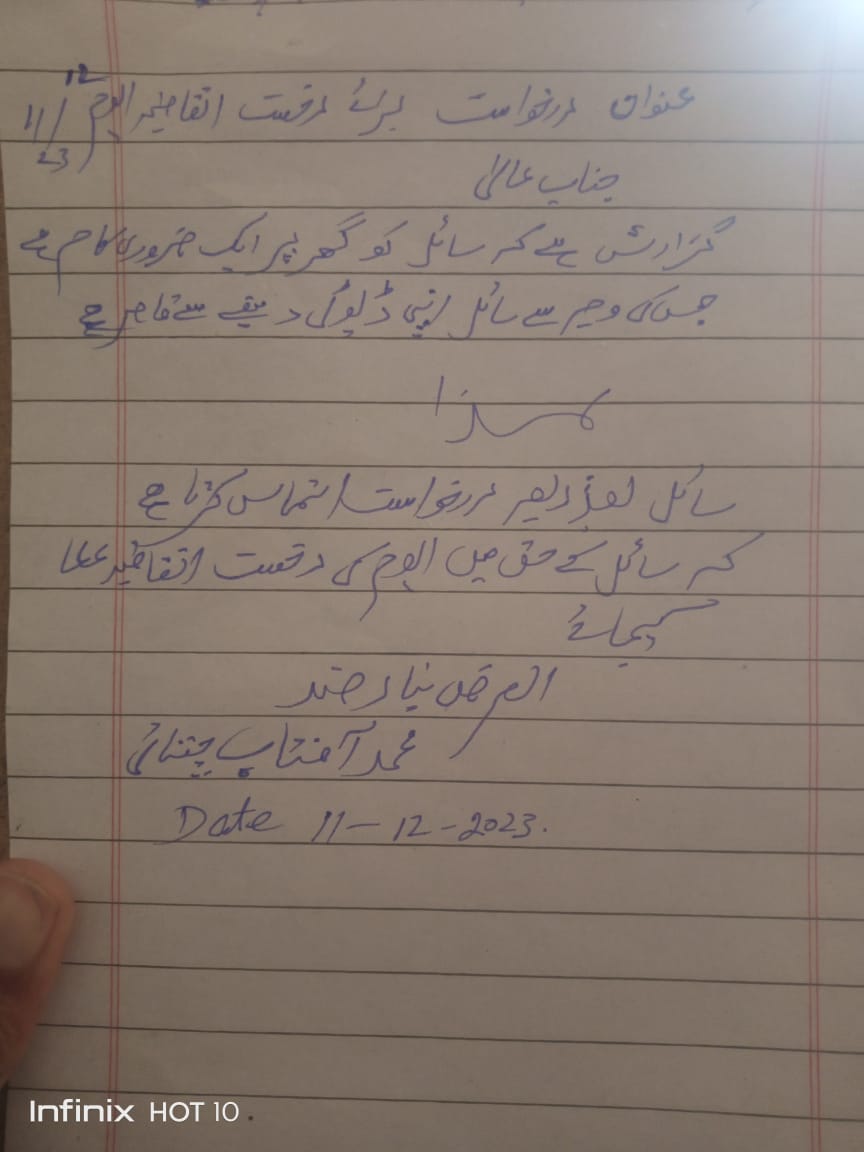 عنوان درخواست برائے رخصت اتفاقیہ الیوم 11/12/23
جناب عالی
گزارش ہے کہ سائل کو گھر پر ایک ضروری کام ہے
جس کی وجہ سے سائل اپنی ڈیوٹی دینے سے قاصر ہے
لہذا
سائل بذریعہ درخواست التماس کرتا ہے
کہ سائل کے حق میں الیوم کی رخصت اتفاقیہ عطا
کیجائے
العرض نیاز مند
محمد آفتاب
Date 11-12-2023.
Infinix HOT 10